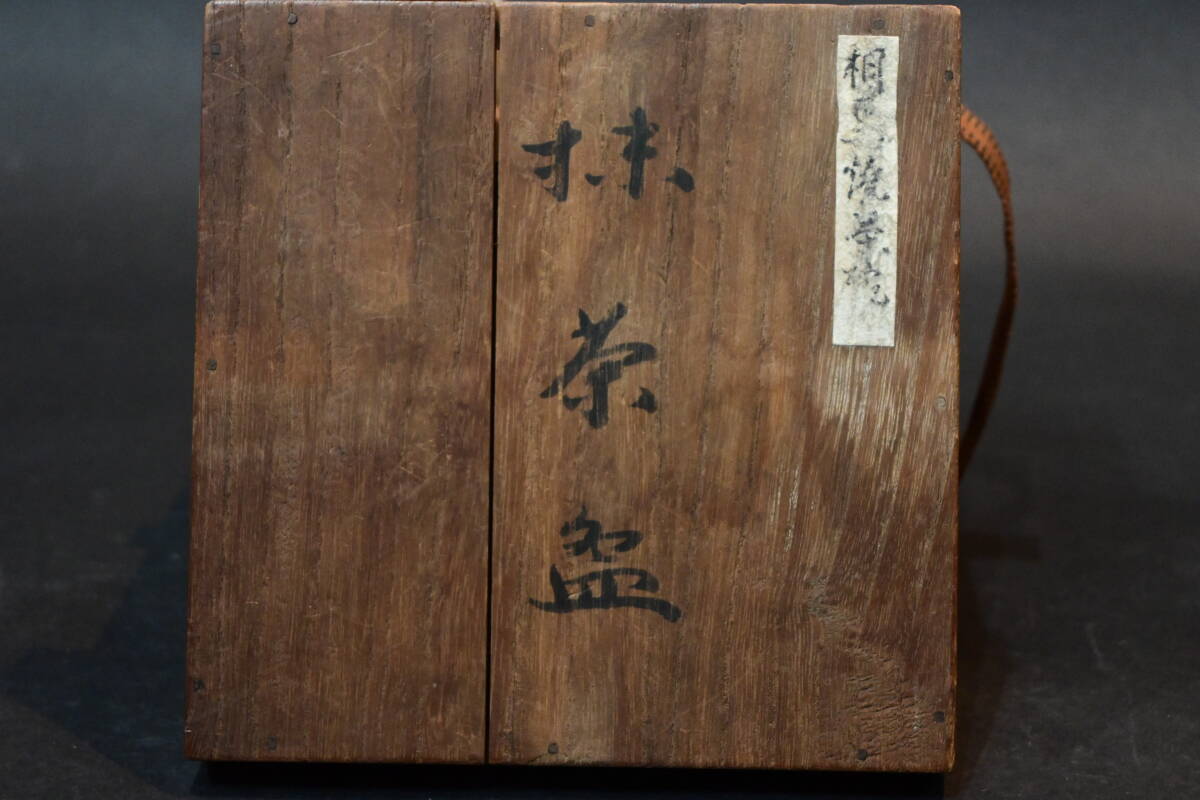 相馬焼茶碗
抹茶盌